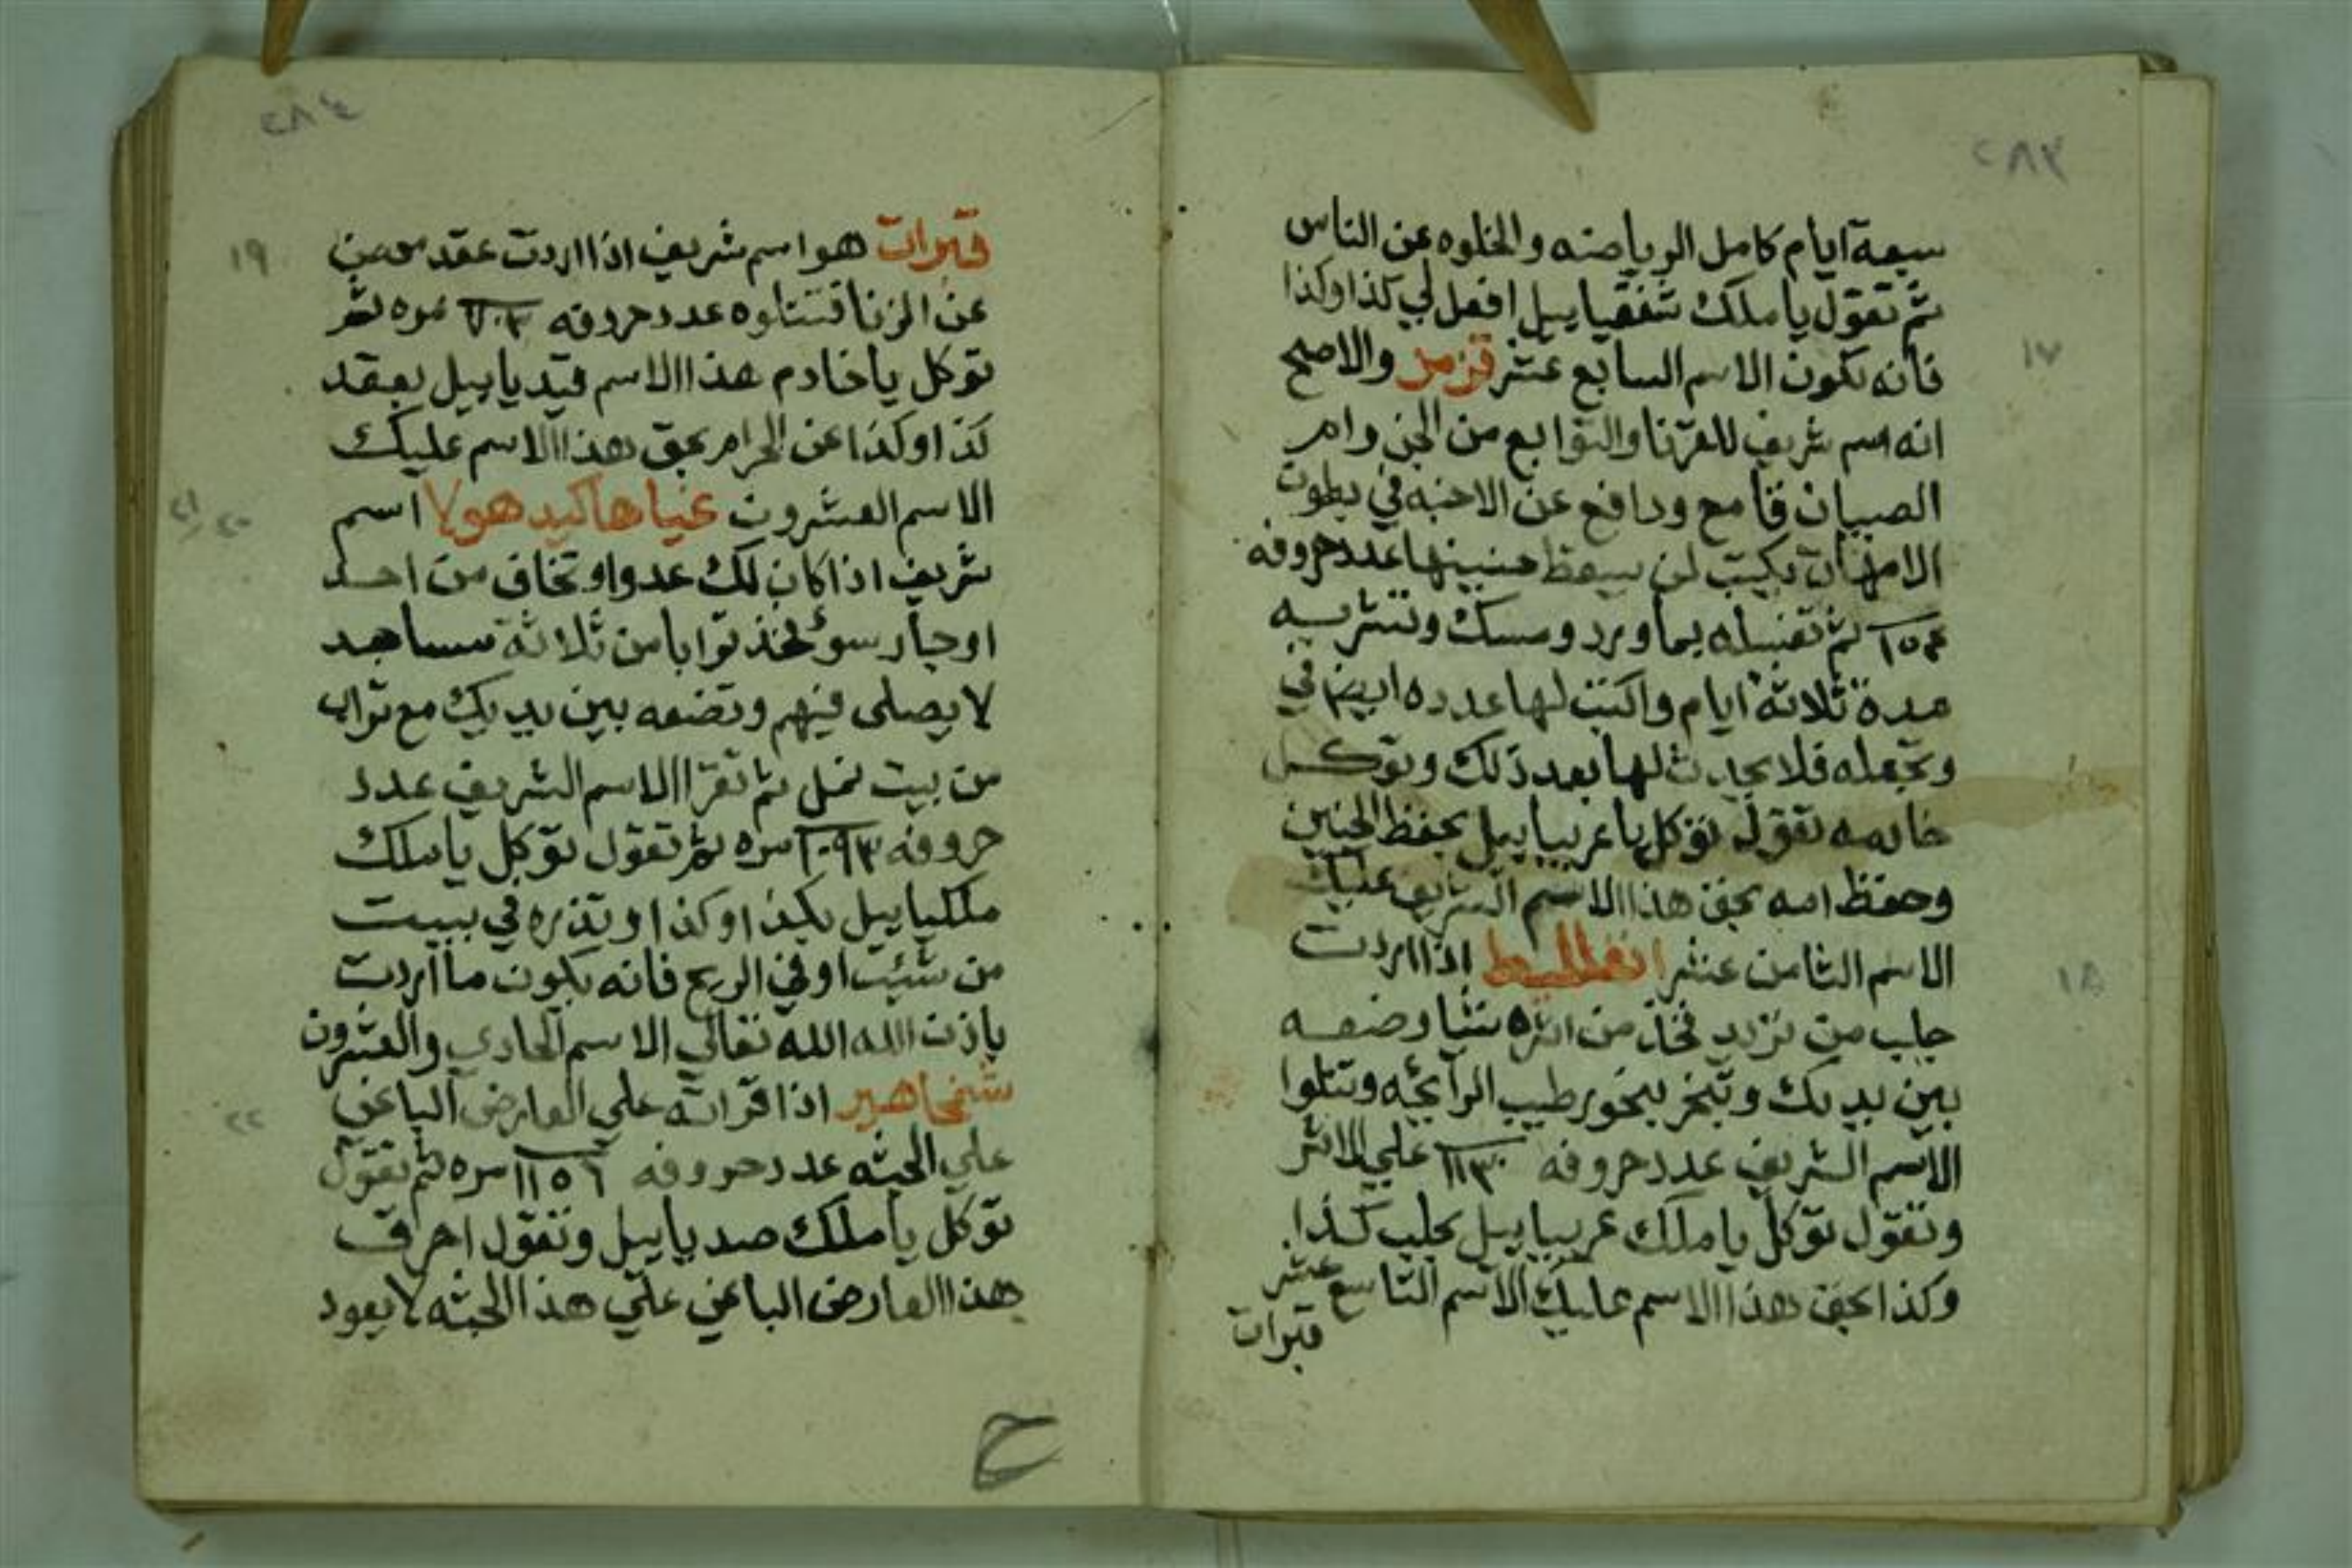 ٢٨٣
سبعة ايام كامل الرياضه والخلوه عن الناس
ثم تقول يا ملك شفقياييل افعل لي كذا وكذا
فانه يكون الاسم السابع عشر قزمز والاصح
١٧
انه اسم شريف للقرنا والتوابع من الجن وام
الصبيان قامع ودافع عن الاجنه في بطون
الامهات يكتب لمن يسقط جنينها عدد حروفه
١٥٤ ثم تغسله بماورد ومسك وتشربه
مدة ثلاثة ايام واكتب لها عدده ايضا في
وتجعله فلا يحدث لها بعد ذلك وتوكل
خادمه تقول توكل يا عريياييل بحفظ الجنين
وحفظ امه بحق هذا الاسم الشريف عليك
الاسم الثامن عشر اذا اردت
١٨
جلب من تريد فخذ من اثره شيا وضعه
بين يديك وتبخر ببخور طيب الرآيحه وتتلوا
الاسم الشريف عدد حروفه ١١٣٠ علي الاثر
وتقول توكل يا ملك عريياييل بجلب كذا
وكذا بحق هذا الاسم عليك الاسم التاسع عشر
قبرات
٢٨٤
قبرات هو اسم شريف اذا اردت عقد شخص
١٩
عن الزنا فتتلوه عدد حروفه ٧٠٣ مره ثم
توكل يا خادم هذا الاسم قيدياييل بعقد
كذا وكذا عن الحرام بحق هذا الاسم عليك
الاسم العشرون غياها كيد هولا اسم
٢٠/٢١
شريف اذا كان لك عدوا وتخاف من احد
او جار سوء فخذ ترابا من ثلاثة مساجد
لا يصلى فيهم وتضعه بين يديك مع تراب
من بيت نمل ثم تقرا الاسم الشريف عدد
حروفه ١٠٩٣ مره ثم تقول توكل يا ملك
ملكياييل بكذا وكذا وتذره في بيت
من شيت او في الريح فانه يكون ما اردت
باذن الله الله تعالي الاسم الحادي والعشرون
شمخاهير اذا قراته علي العارض الباغي
٢٢
علي الجثه عدد حروفه ١١٥٦ مره ثم تقول
توكل يا ملك صدياييل وتقول احرق
هذا العارض الباغي علي هذا الجثه لا يعود
ح